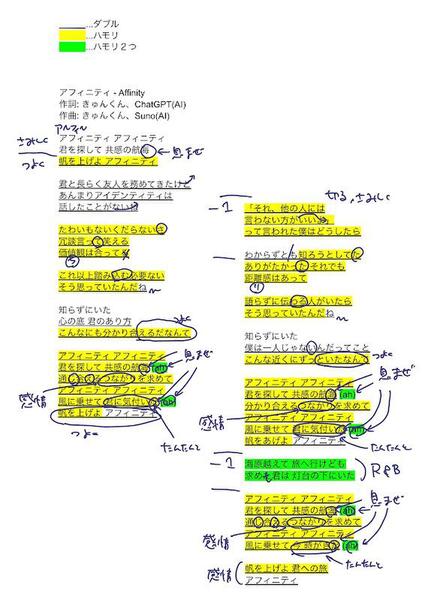 ＿＿＿...ダブル
...ハモリ
...ハモリ２つ
アフィニティ - Affinity
作詞: きゅんくん、ChatGPT(AI)
作曲: きゅんくん、Suno(AI)
アフィニティ アフィニティ
さみしく
君を探して 共感の航海
息まぜ
つよく
帆を上げよ アフィニティ
君と長らく友人を務めてきたけど
あんまりアイデンティティは
話したことがない
たわいもないくだらないさ
冗談言って笑える
価値観は合ってる
これ以上踏み込む必要ない
そう思っていたんだね
知らずにいた
つよく
心の底 君のあり方
こんなにも分かり合えるだなんて
アフィニティ アフィニティ
息まぜ
君を探して 共感の航海 (ah)
通じ合えるつながりを求めて
感情
風に乗せて 君に気付いた (ah)
帆を上げよ アフィニティ
つよく
たんたんと
切る、さみしく
-1
「それ、他の人には
言わない方がいいよ」
って言われた僕はどうしたら
わからずとも知ろうとしてた
ありがたかった それでも
距離感はあって
語らずに伝わる人がいたら
そう思っていたんだね
知らずにいた
僕は一人じゃないんだってこと
つよく
こんな近くにずっといたなんて
息まぜ
アフィニティ アフィニティ
君を探して 共感の航海 (ah)
分かり合える つながりを求めて
感情
風に乗せて 君に気付いた (ah)
帆をあげよ アフィニティ
たんたんと
-1
海原越えて 旅へ行けども
求めも君は 灯台の下にいた
R&B
アフィニティ アフィニティ
息まぜ
君を探して 共感の航海 (ah)
通じ合える つながりを求めて
感情
風に乗せて (ah)
たんたんと
感情
帆を上げよ 君への旅
アフィニティ